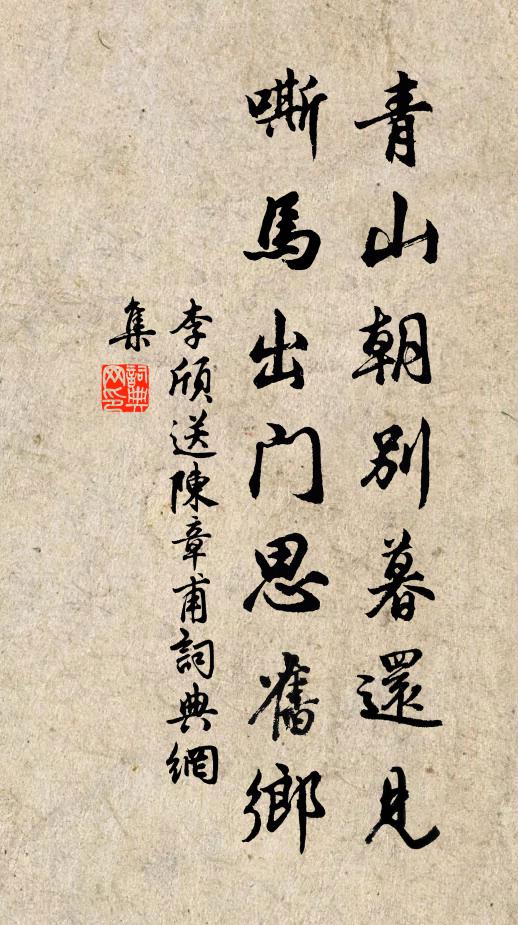 青山朝別暮還見
嘶馬出門思舊鄉
李頎送陳章甫詞典網
集
詞典
网印